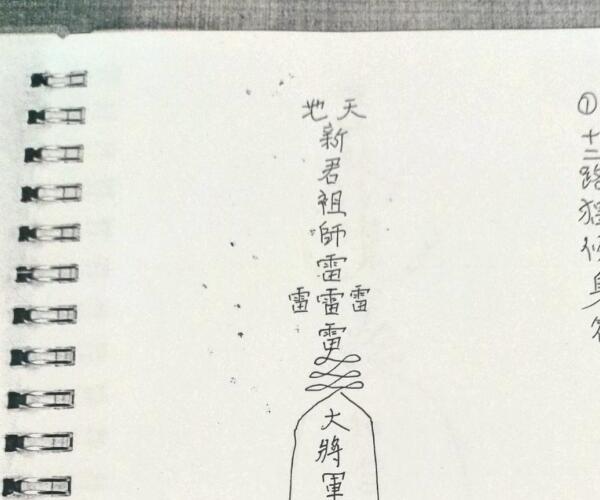 ①十二路猖
天地
新君祖師雷雷雷
雷
雷
大將軍